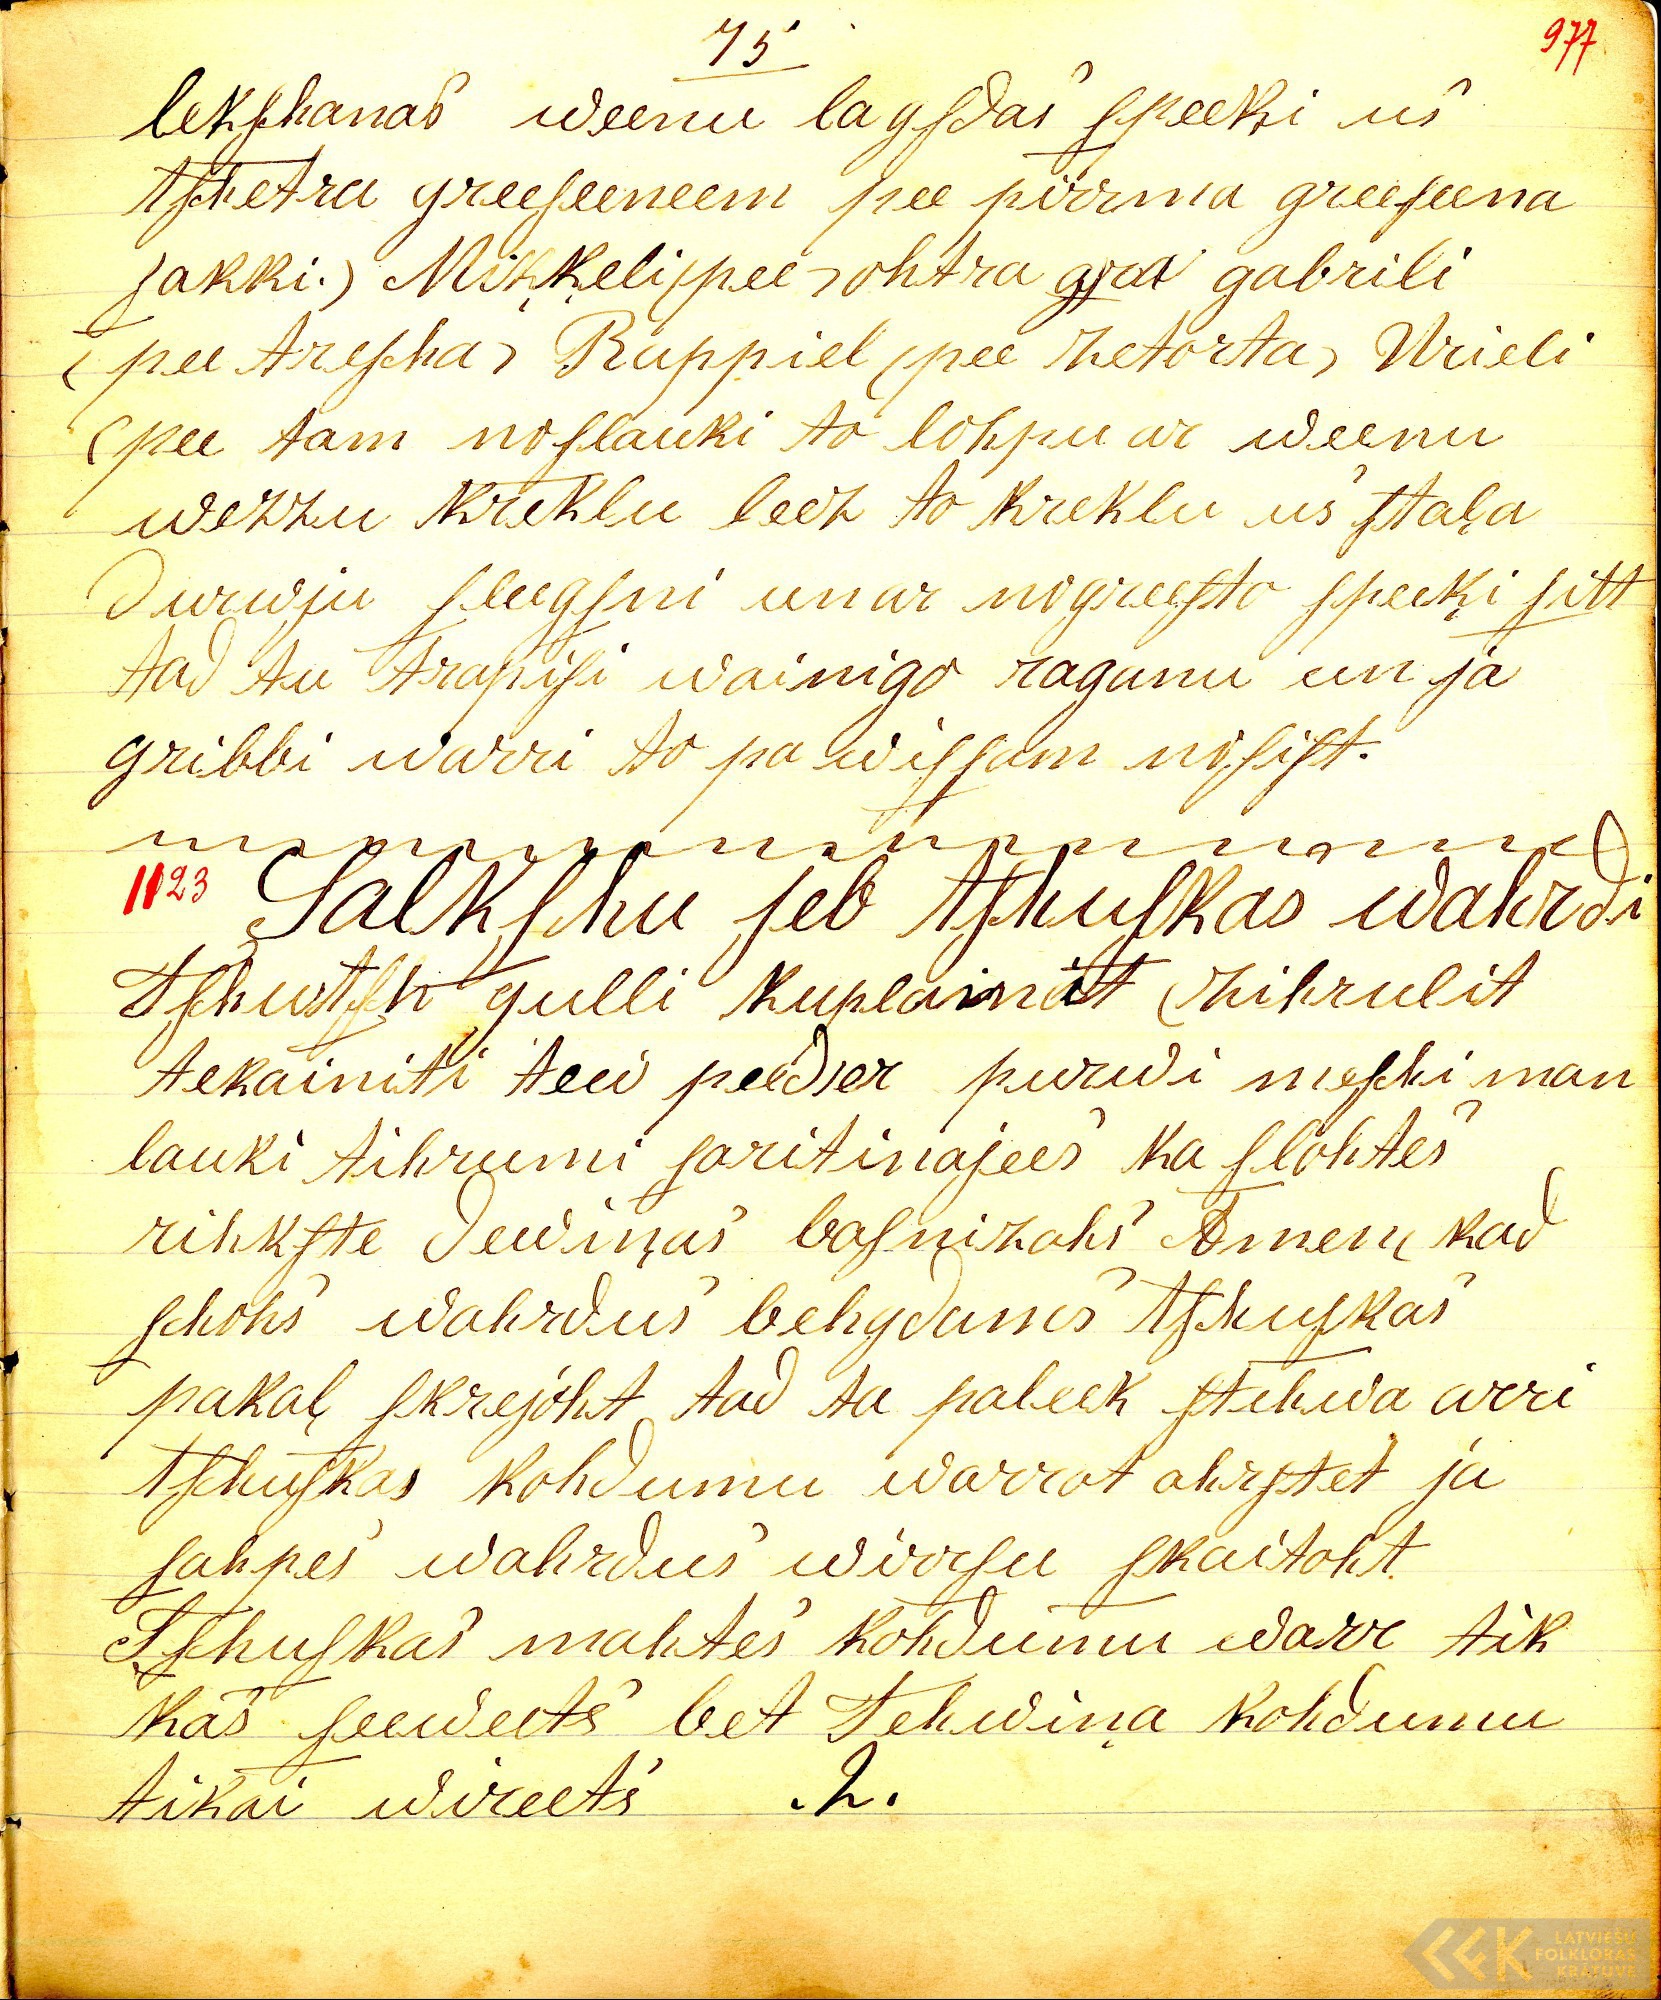 75
977
lekſchanas weenu lagſdas ſpeeķi us
tſchetru greeſeeneem pee pirrma greeſeena
ſakki.) Miķķeli (pee) ohtra grat gabrili
(pee treſcha) Rappiel (pee zetorta) Urieli
(pee tam noſlauki to lohpu ar weenu
wezzu kreklu leez to kreklu us ſtaļa
durwju ſleegſni un ar nogreeſto ſpeeķi ſitt
tad tu trapiſi wainigo raganu un ja
gribbi warri to pa wiſſam noſiſt.
1123 Salkſchu jeb tſchuſkas wahrdi
Tſchutſch gulli kuplainit (zihrulit
tekainiti tew peeder purwi meſchi man
lauki tihrumi ſaritinajees ka ſlohtes
rihkſte dewiņas baſnizahs Amen, kad
ſchohs wahrdus behgdamas tſchuſkas
pakaļ ſkrejoht tad ta paleek ſtehwa arri
tſchuſkas kohdumu warrot ahrſtet ja
ſahpes wahrdus wirrſu ſkaitoht
Tſchuſkas mahtes kohdumu warr tik
kas ſeeweets bet Tehwiņa kohdumu
tikai wireets
LATVIEŠU
FOLKLORAS
KRĀTUVE